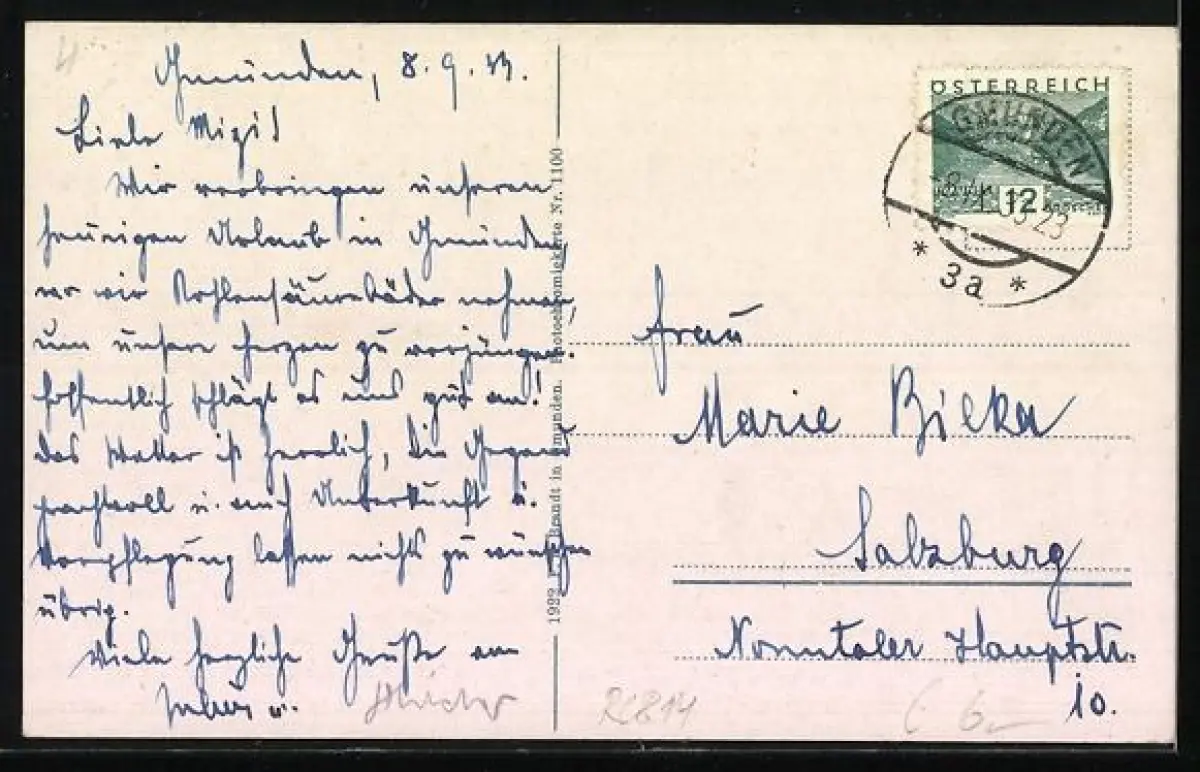 Gmunden, 8. 9. 33.
Liebe Mizi!
Wir verbringen unseren
heurigen Urlaub in Gmunden,
wo wir Kohlensäurebäder nehmen,
um unsere Herzen zu verjüngen.
Hoffentlich schlägt es uns gut an!
Das Wetter ist herrlich, die Gegend
prachtvoll u. auch Unterkunft u.
Verpflegung lassen nichts zu wünschen
übrig.
Viele herzliche Grüße
u.
1922 Brandt in Gmunden. Photochromiekarte Nr. 1100
ÖSTERREICH
12
GMUNDEN
* 3a *
Frau
Marie Bilka
Salzburg
Nonntaler Hauptstr.
10.